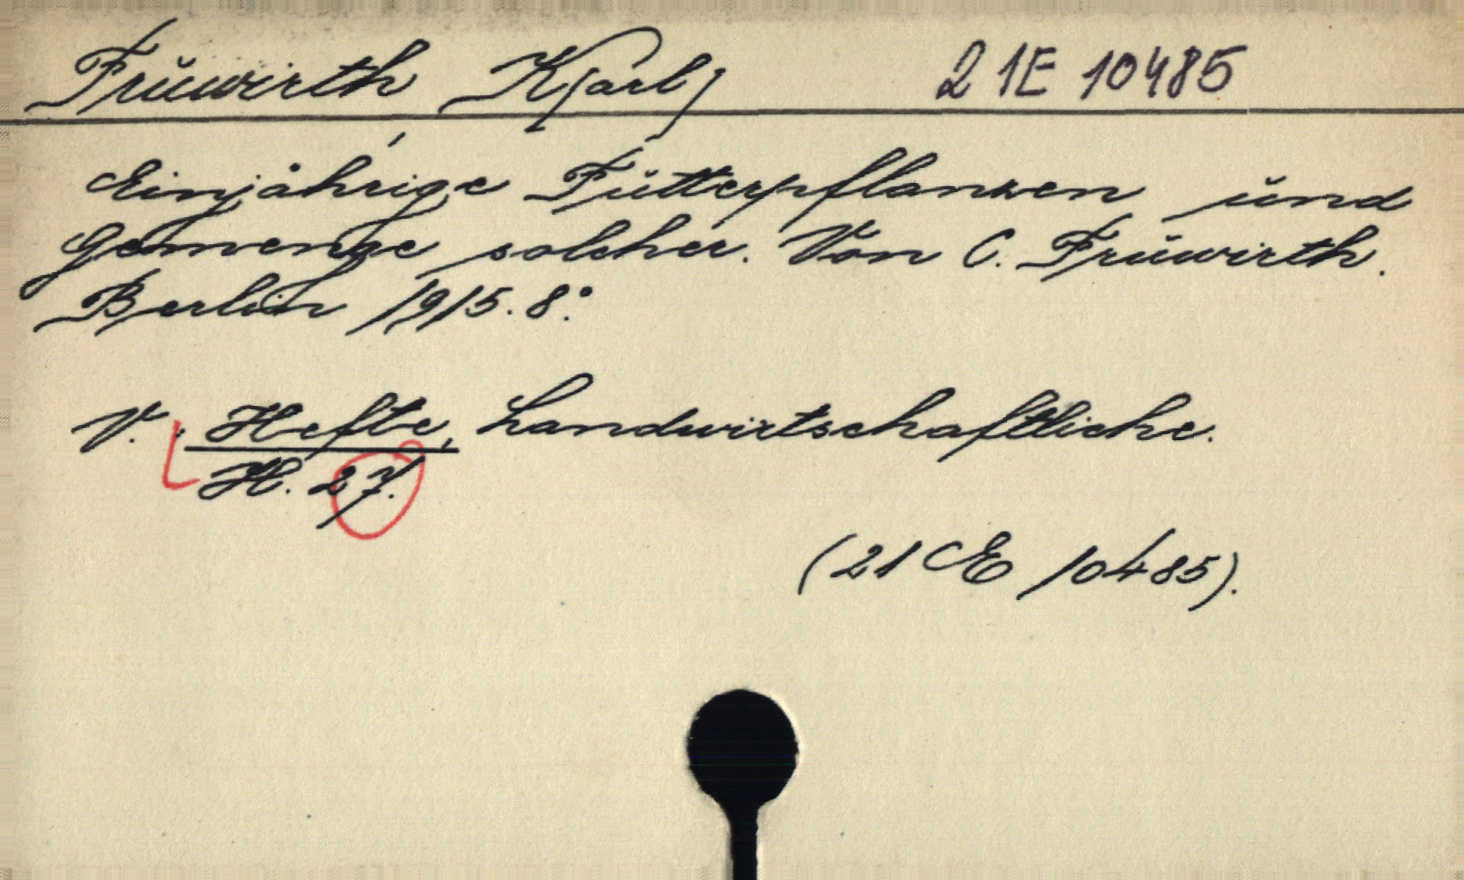 Fruwirth K[arl] 21E 10485
Einjährige Futterpflanzen und
Gemenge solcher. Von C. Fruwirth.
Berlin 1915. 8°.
V. Hefte, Landwirtschaftliche.
H. 27.
(21 E 10485).